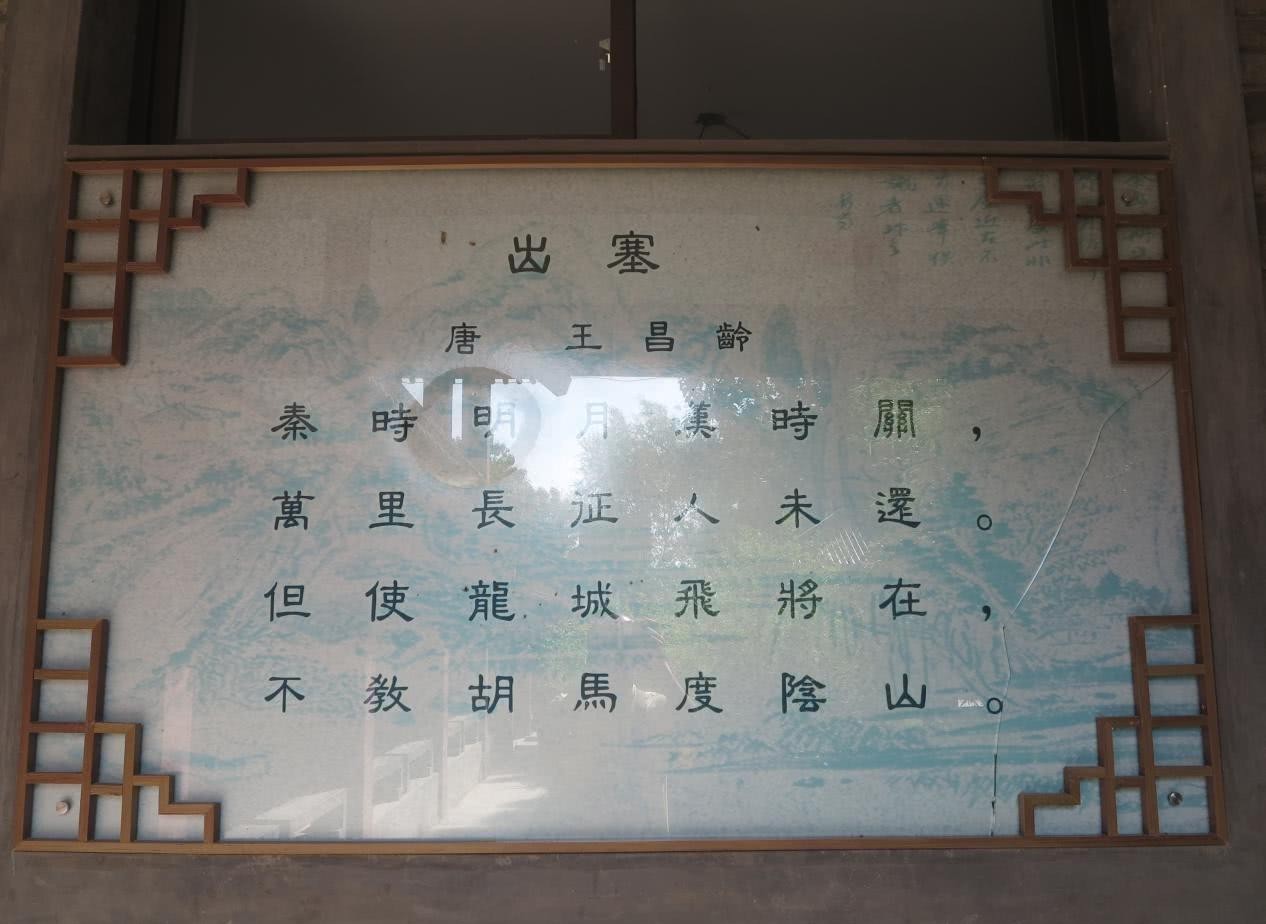 出塞
唐 王昌齡
秦時明月漢時關，
萬里長征人未還。
但使龍城飛將在，
不教胡馬度陰山。